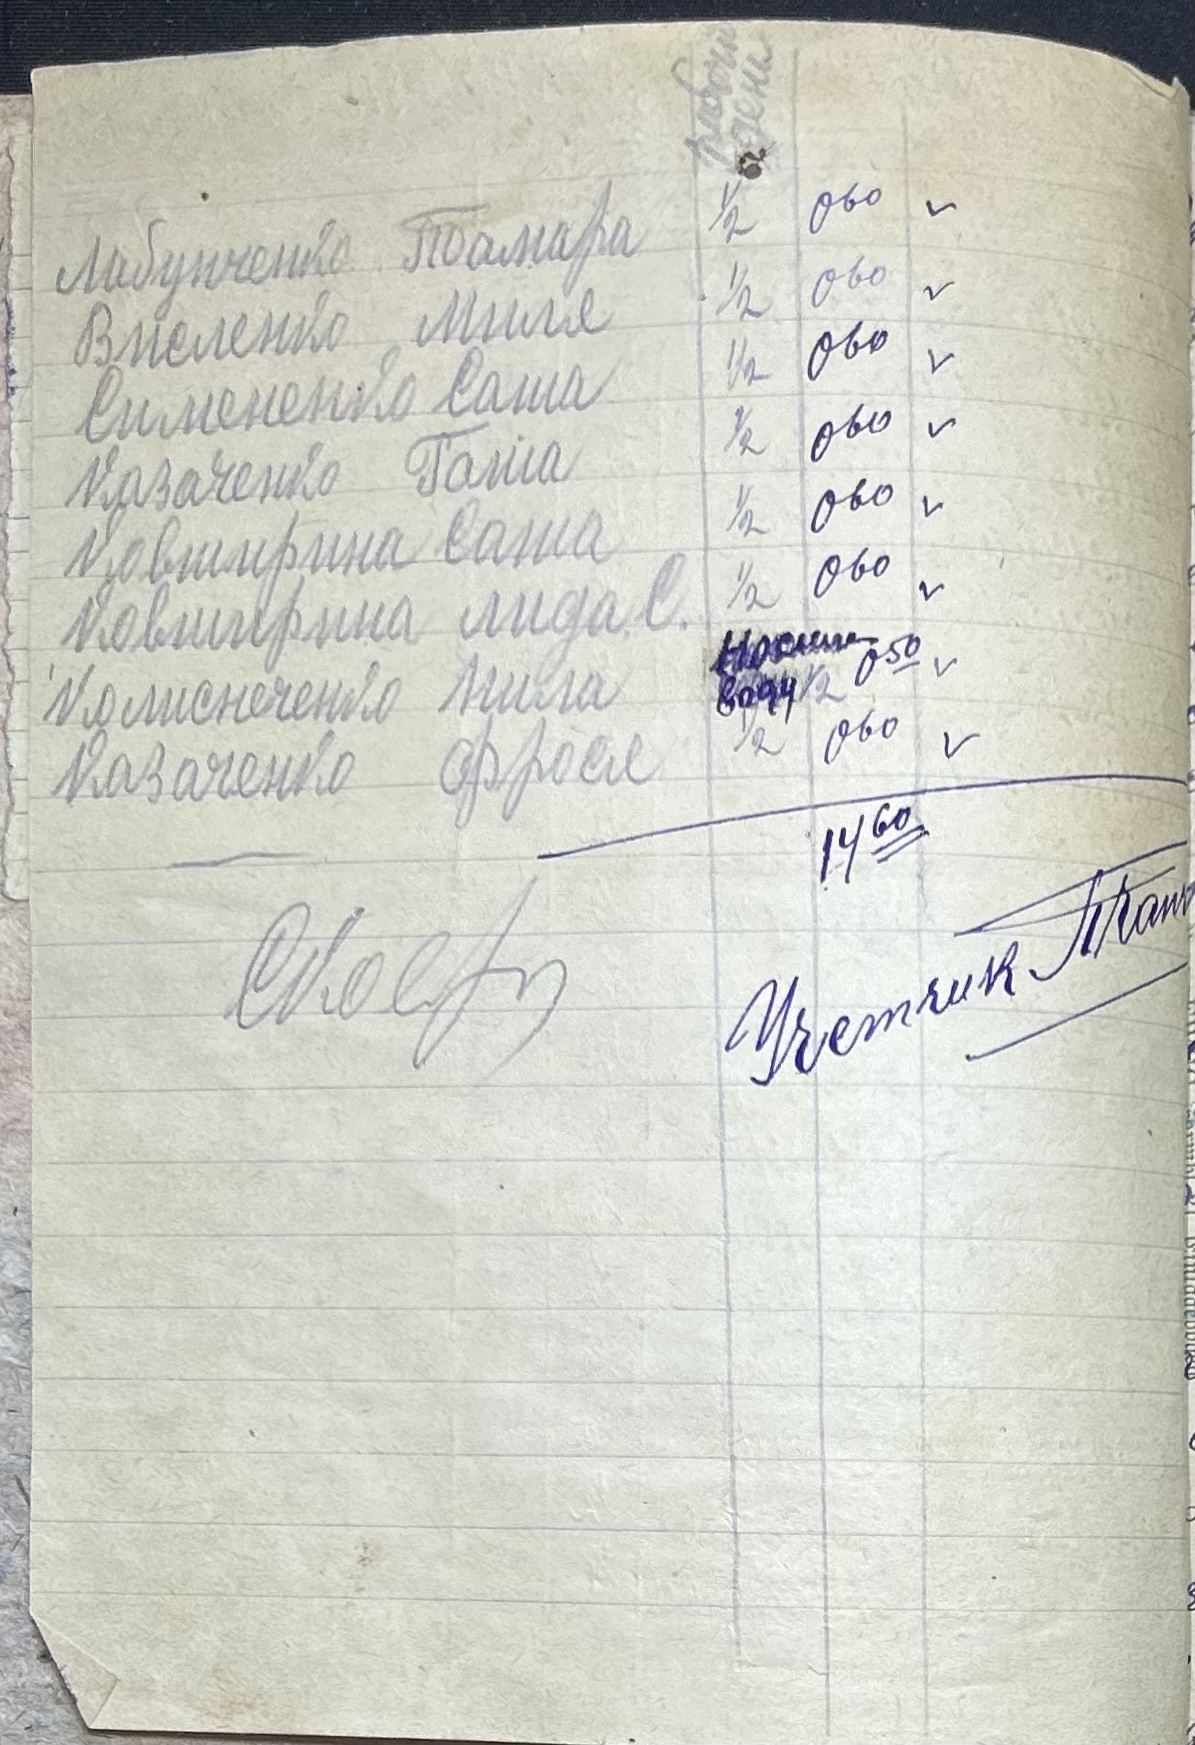 рабочи день
Лабунченко Тамара 1/2 0 60 ✓
Висленко Миля 1/2 0 60 ✓
Симененко Саша 1/2 0 60 ✓
Казаченко Гаша 1/2 0 60 ✓
Ковширина Саша 1/2 0 60 ✓
Ковширина Лида С. 1/2 0 60 ✓
Колисниченко Нила Носили воду 1/2 0 50 ✓
Казаченко Фрося 1/2 0 60 ✓
14 60
Учетчик